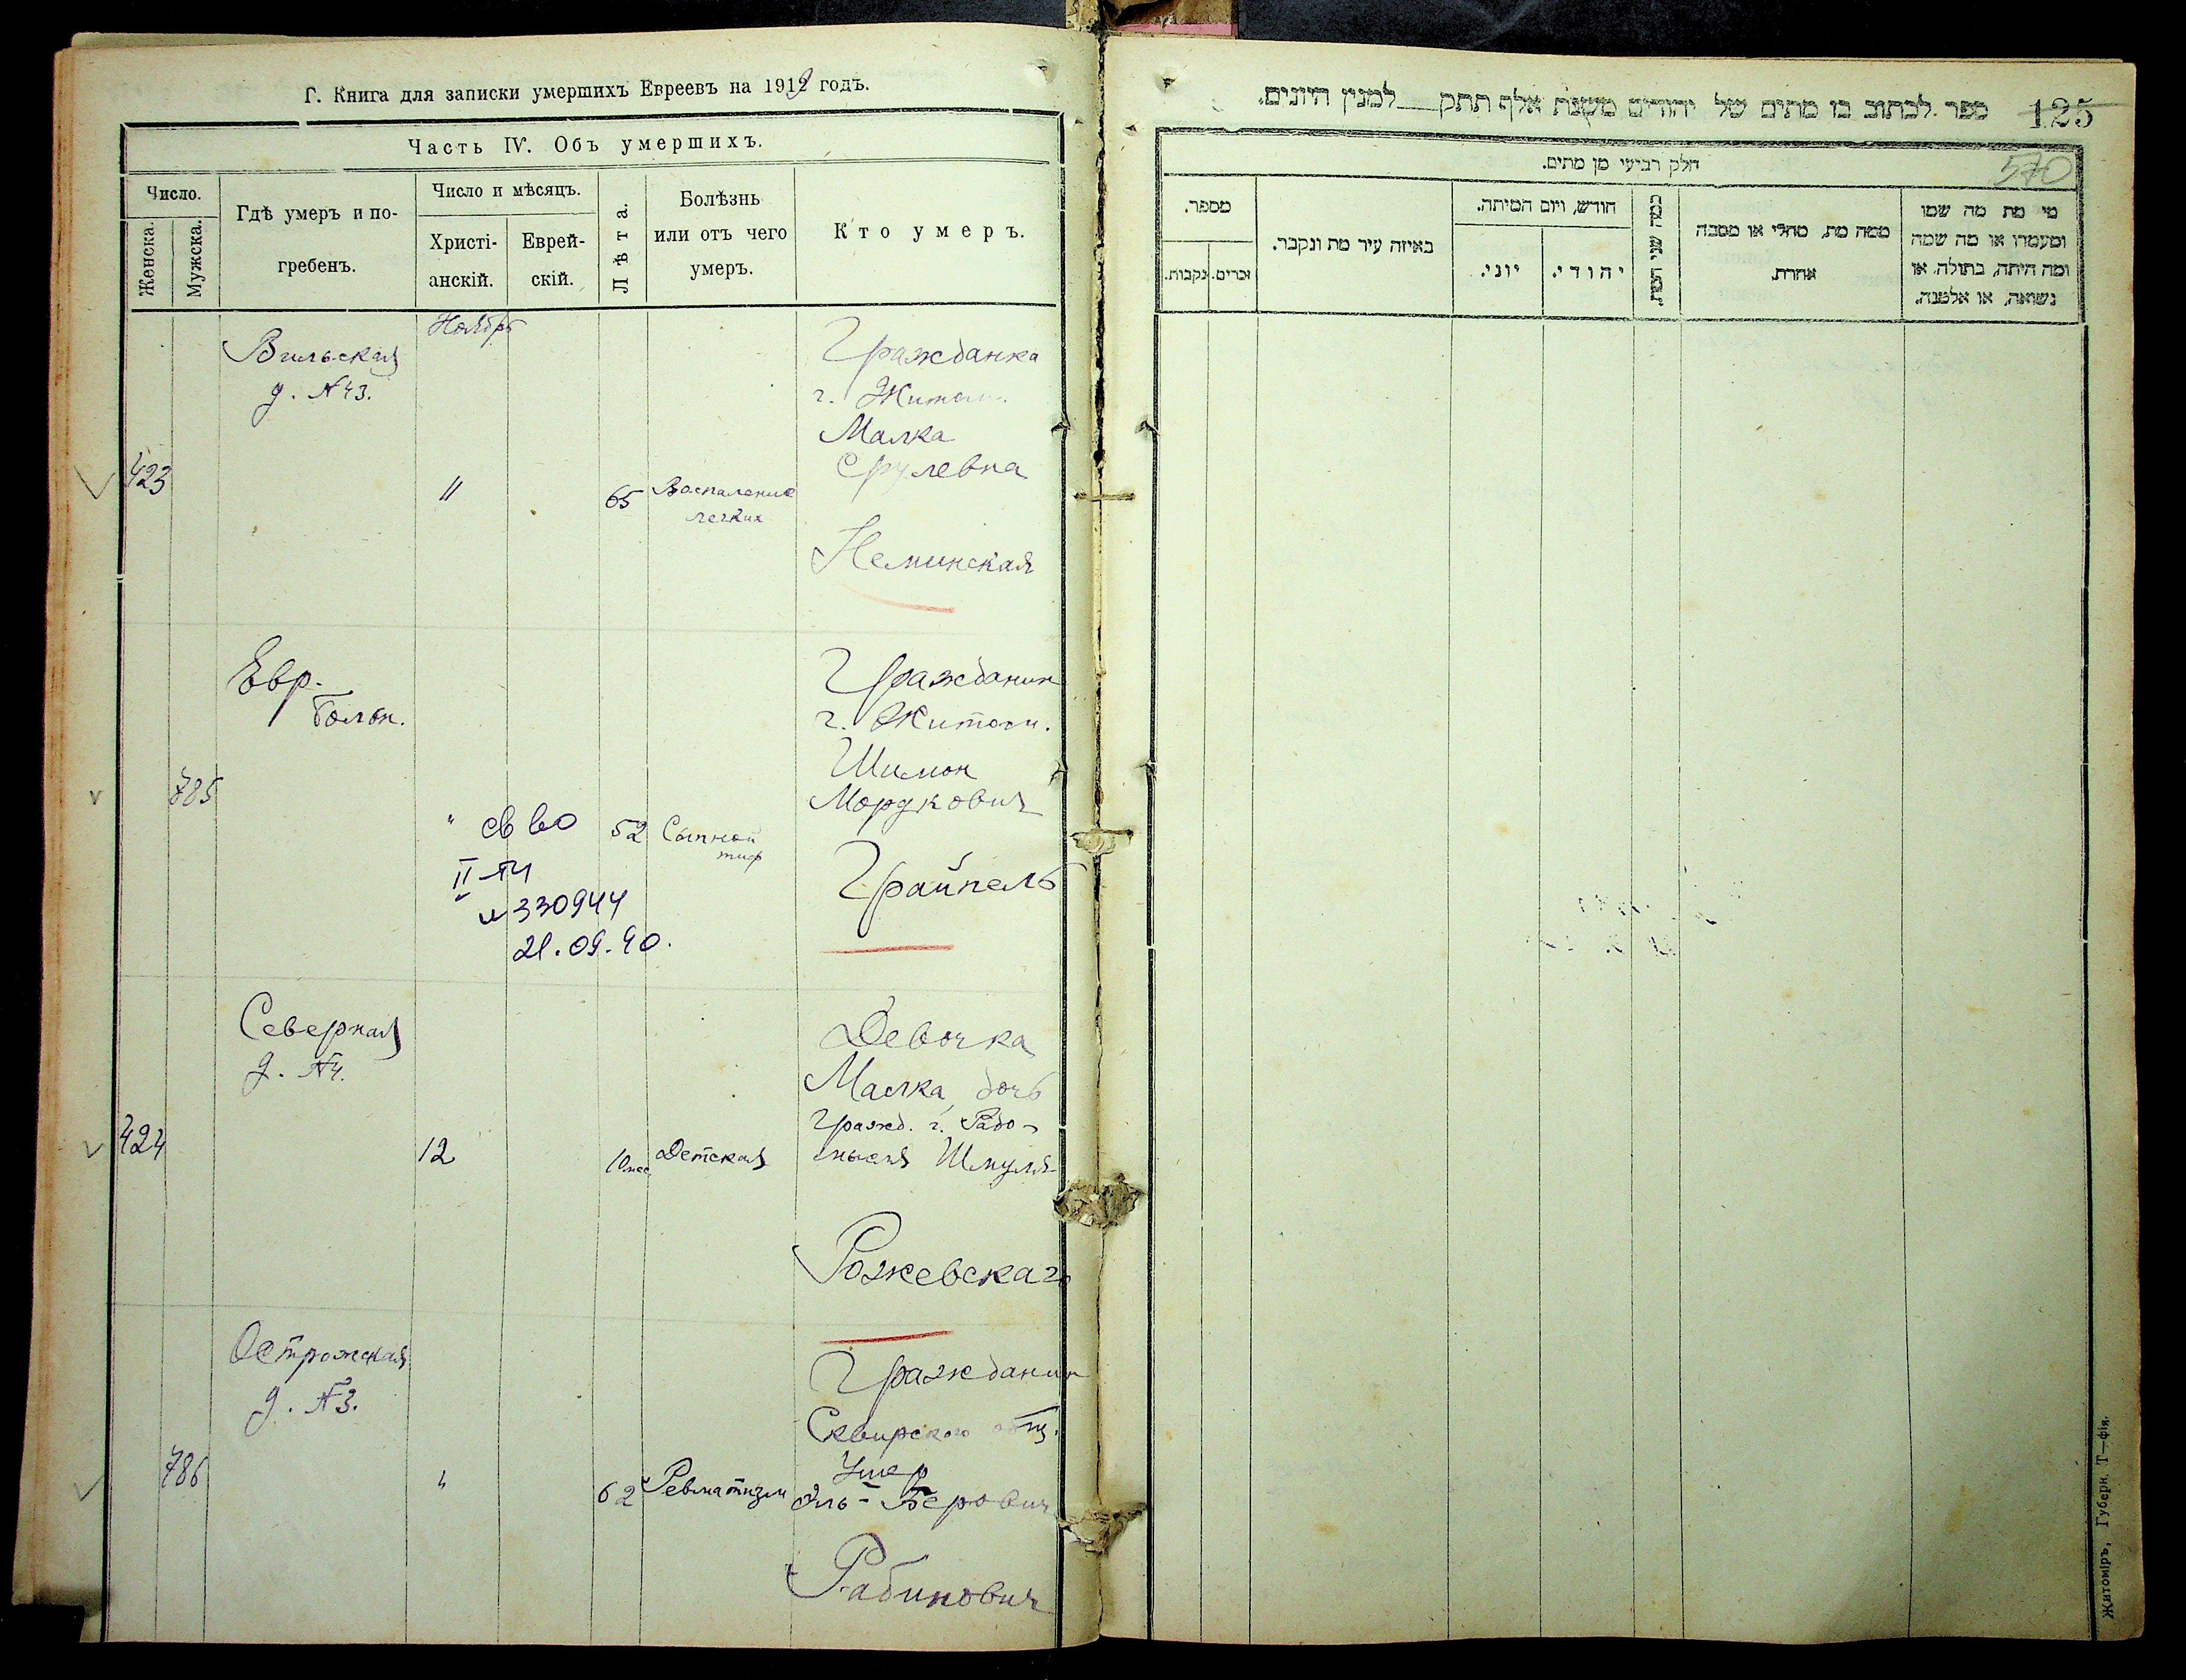 Г. Книга для записки умершихъ Евреевъ на 1919 годъ.
Часть IV. Объ умершихъ.
Число.
Женска.
Мужска.
Гдѣ умеръ и по-
гребенъ.
Число и мѣсяцъ.
Христі-
анскій.
Еврей-
скій.
Лѣта.
Болѣзнь
или отъ чего
умеръ.
Кто умеръ.
Ноябрь
Вильская
д. №43.
423
11
65
Воспаление
легких
Гражданка
г. Житом.
Малка
Срулевна
Неминская
Евр.
болън.
785
"
св во
II-ТИ
№330944
21.09.90.
52
Сыпной
тиф
Гражданин
г. Житом.
Шимон
Мордкович
Грайпель
Северная
д. №4.
424
12
10 мес
Детская
Девочка
Малка, дочь
гражд. г. Радо-
мысля Шмуля
Рожевскаго
Острожская
д. №3.
786
"
62
Ревматизм
Гражданин
Сквирского общ.
Ушер
Эль-Берович
Рабинович
ספר לכתוב בו מתים של יהודים משנת אלף תתק למנין היונים.
125
570
חלק רביעי מן מתים.
מי מת מה שמו
ומעמדו או מה שמה
ומה היתה, בתולה, או
נשואה, או אלמנה.
ממה מת, מחלי או מסבה
אחרת.
כמה שני חייו.
חודש, ויום המיתה.
יהודי.
יוני.
באיזה עיר מת ונקבר.
מספר.
זכרים.
נקבות.
Житоміръ, Губерн. Т—фія.